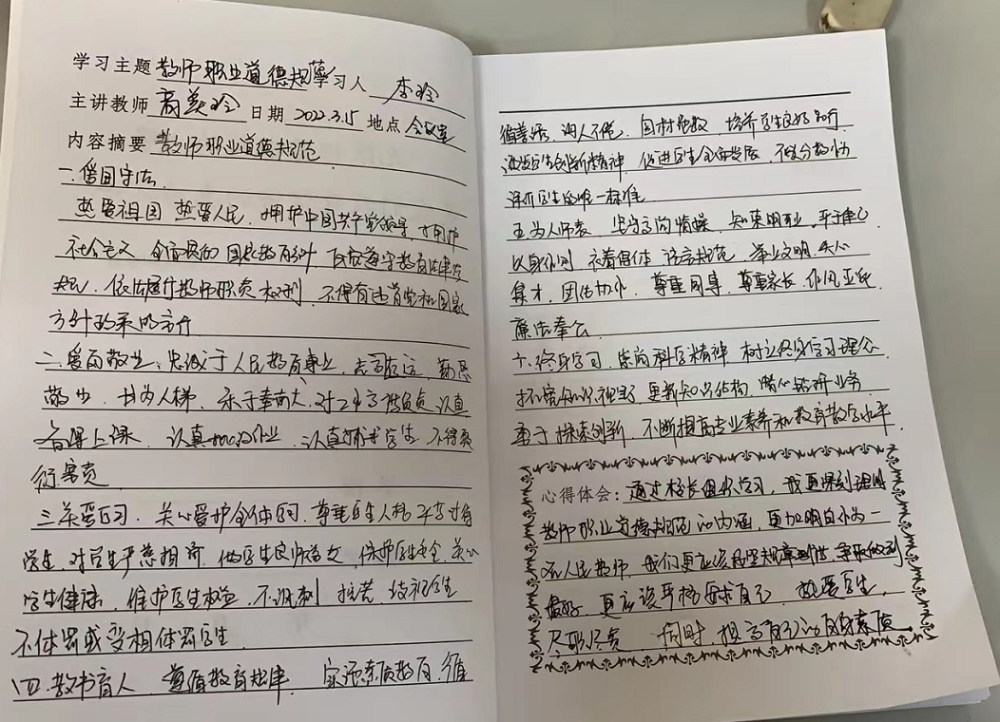 学习主题 教师职业道德规范 学习人 李玲
主讲教师 日期 2022.3.15 地点 会议室
内容摘要 教师职业道德规范
一.爱国守法
热爱祖国 热爱人民、拥护中国共产党领导、拥护
社会主义 全面贯彻 国家教育方针 自觉遵守教育法律法
规、依法履行教师职责权利、不得有违背党和国家
方针政策的言行
二、爱岗敬业:忠诚于人民教育事业、志存高远、勤恳
敬业、甘为人梯、乐于奉献、对工作高度负责、认真
备课上课、认真批改作业、认真辅导学生、不得敷
衍塞责
三.关爱学习、关心爱护全体、尊重学生人格 平等对待
学生、对学生严慈相济、做学生良师益友、保护学生安全、关心
学生健康、维护学生权益、不讽刺 挖苦、歧视学生
不体罚或变相体罚学生
四.教书育人 遵循教育规律、实施素质教育、循
循善诱、诲人不倦、因材施教、培养学生良好品行、
激发学生创新精神、促进学生全面发展、不以分数作为
评价学生的唯一标准
五.为人师表 坚守高尚情操、知荣明耻、严于律己
以身作则、衣着得体 语言规范、举止文明、关心
集体、团结协作、尊重同事、尊重家长、作风正派
廉洁奉公
六.终身学习、崇尚科学精神、树立终身学习理念
拓宽知识视野、更新知识结构、潜心钻研业务
勇于探索创新、不断提高专业素养和教育教学水平.
心得体会:通过校长组织学习,我更深刻理解
教师职业道德规范的内涵,更加明白作为一
名人民教师、我们更应该 规章制度,争取做到
最好、更应该严格要求自己、热爱学生,
尽职尽责 同时,提高自己的自身素质